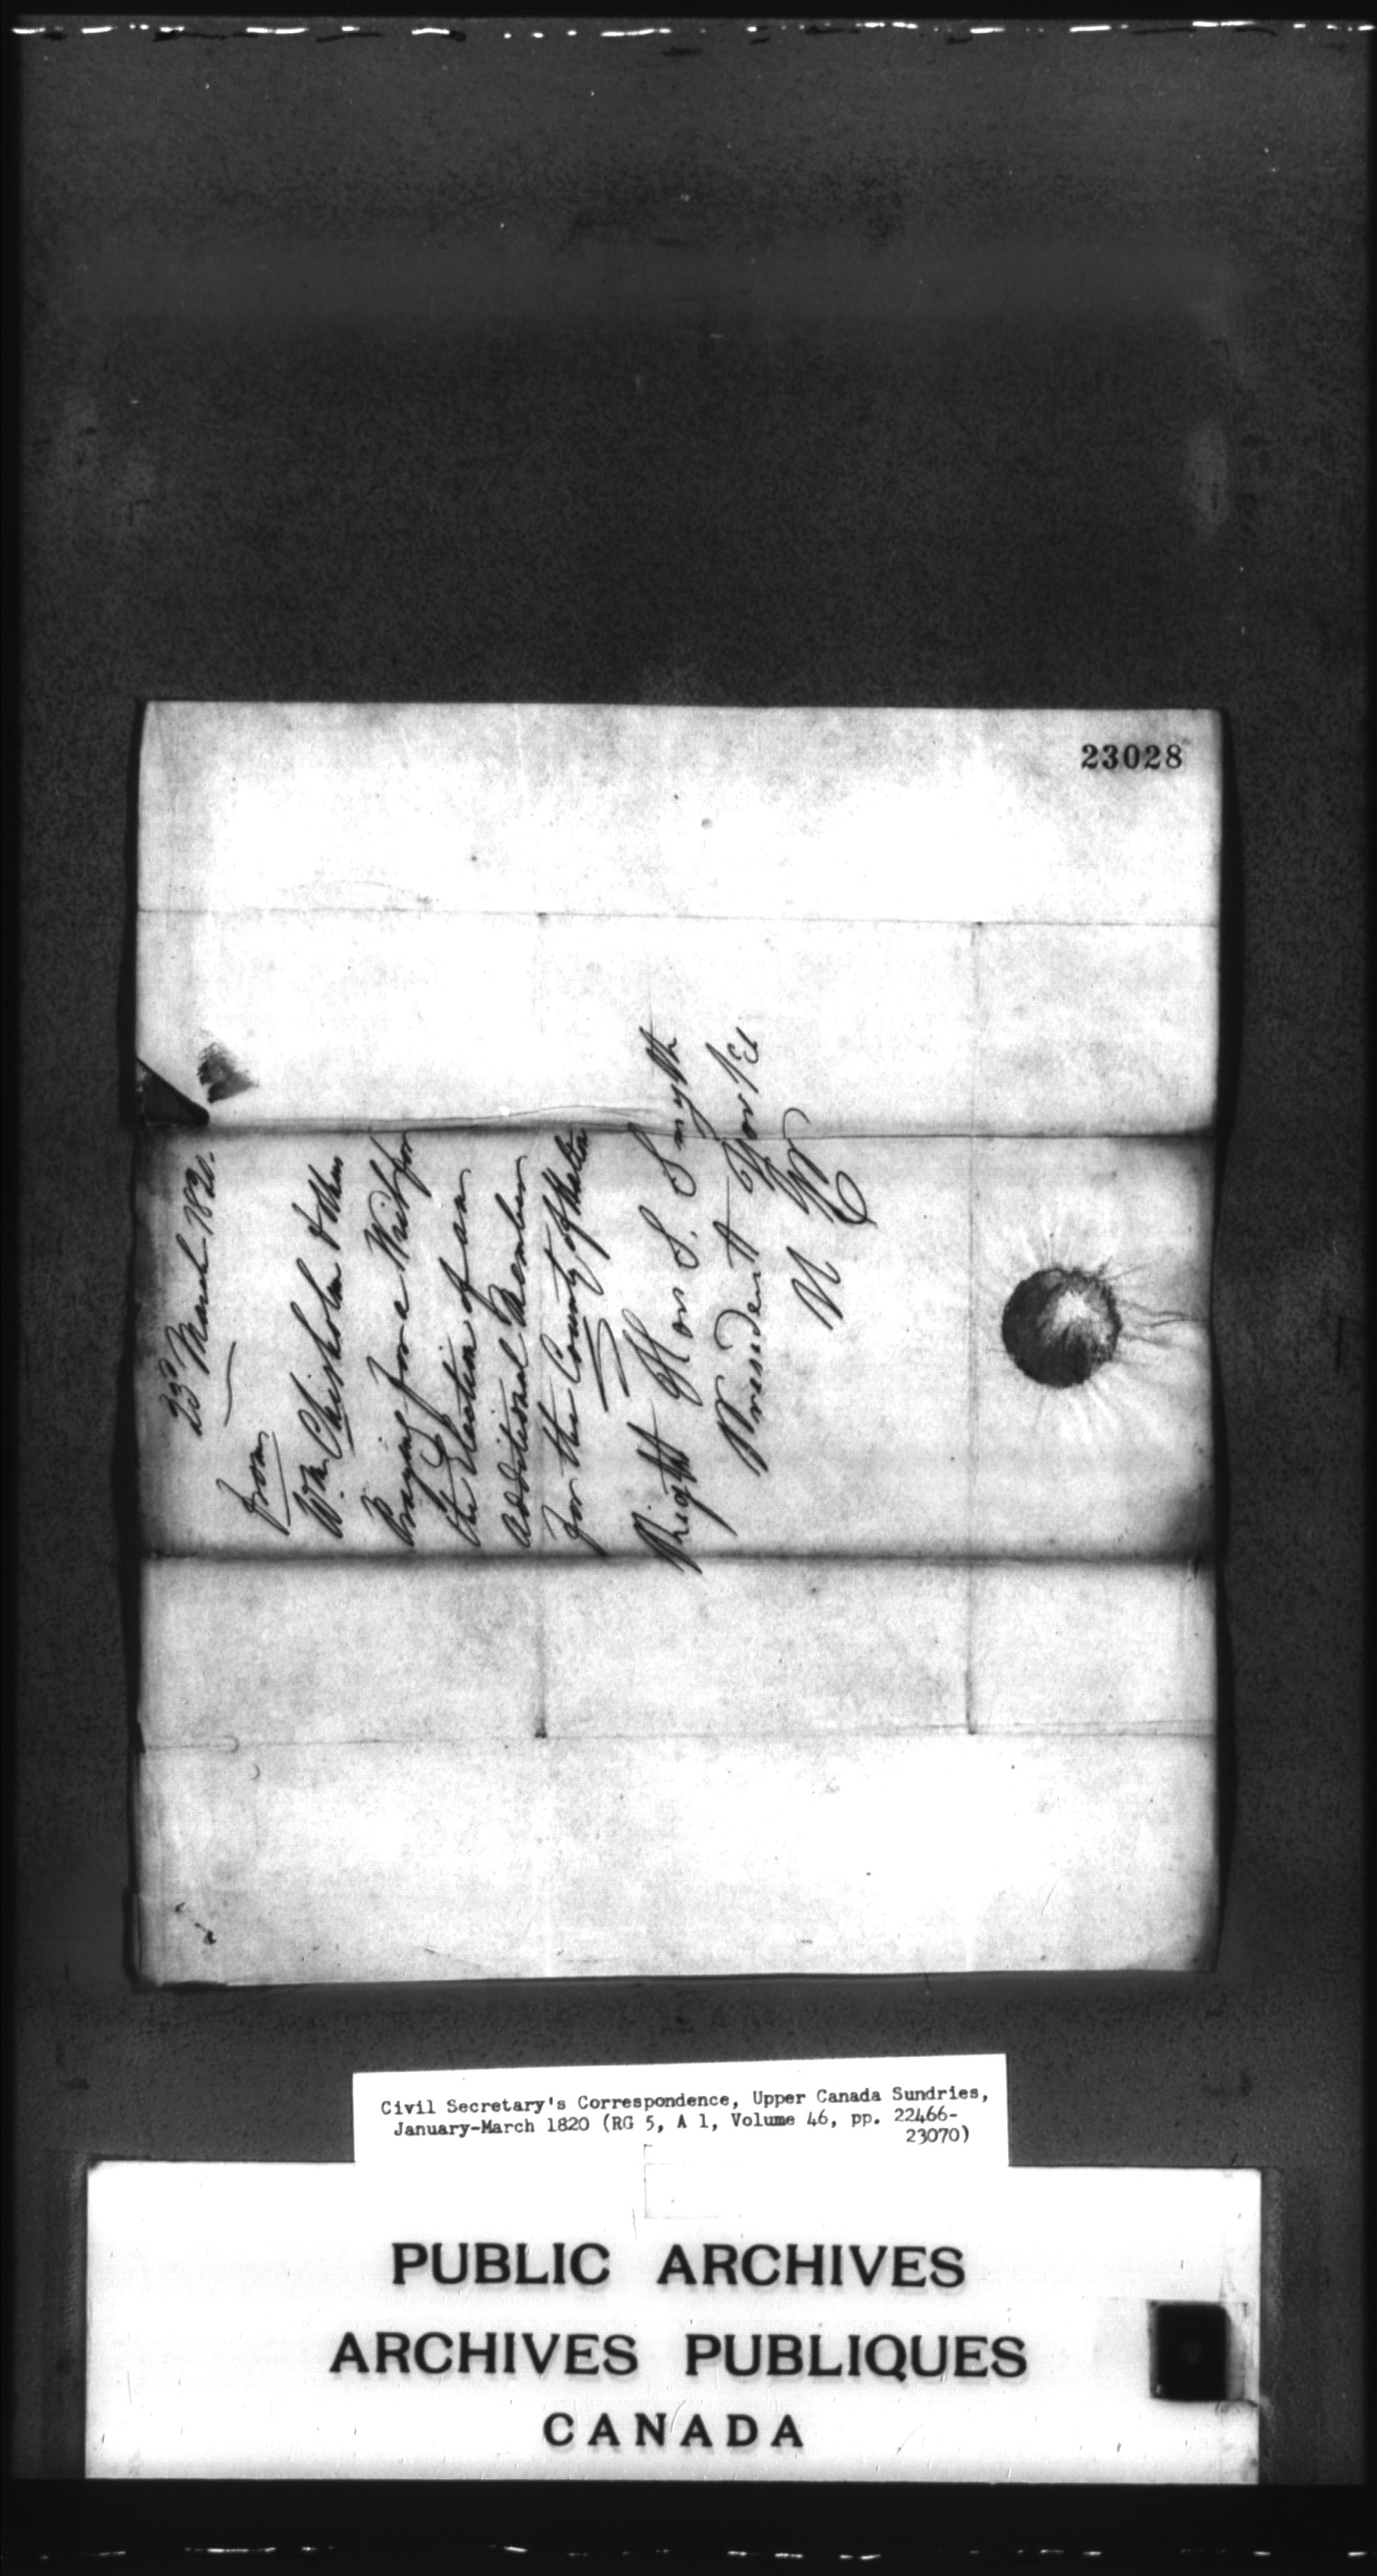 23028
23d March 1820.
from
Wm Chisholm & others
Praying for a Writ for
the Election of an
additional Member
for the County of Halton
Right Hon S. Smyth
President York
U C
Civil Secretary's Correspondence, Upper Canada Sundries,
January-March 1820 (RG 5, A 1, Volume 46, pp. 22466-
23070)
PUBLIC ARCHIVES
ARCHIVES PUBLIQUES
CANADA